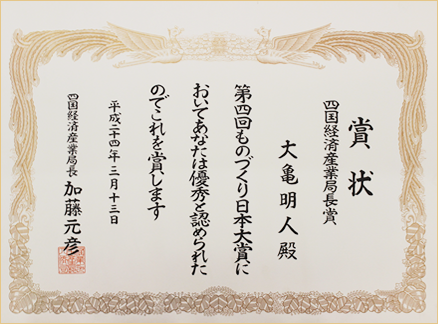 賞状
四国経済産業局長賞
大亀明人殿
第四回ものづくり日本大賞に
おいてあなたは優秀と認められた
のでこれを賞します
平成二十四年三月十三日
四国経済産業局長 加藤元彦